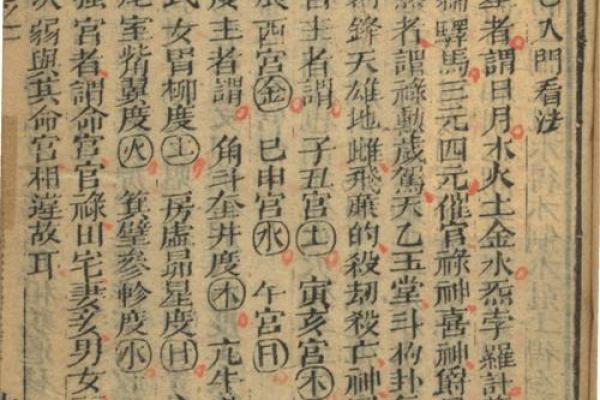 入門看法
者謂日月木火土金水炁孛羅計
驛馬三元四元催官祿神喜神爵
者謂祿勳歲駕天乙玉堂斗杓卦
鋒天雄地雌飛廉的殺劫殺亡神
宮主者謂 子丑宮土 寅亥宮木
辰酉宮金 巳申宮水 午宮日
度主者謂 角斗奎井度木 亢牛
女胃柳度土 房虛昴星度日
尾室觜翼度火 箕壁參軫度水
強宮者謂命宮官祿田宅妻妾男女
弱與其命宮相違故耳